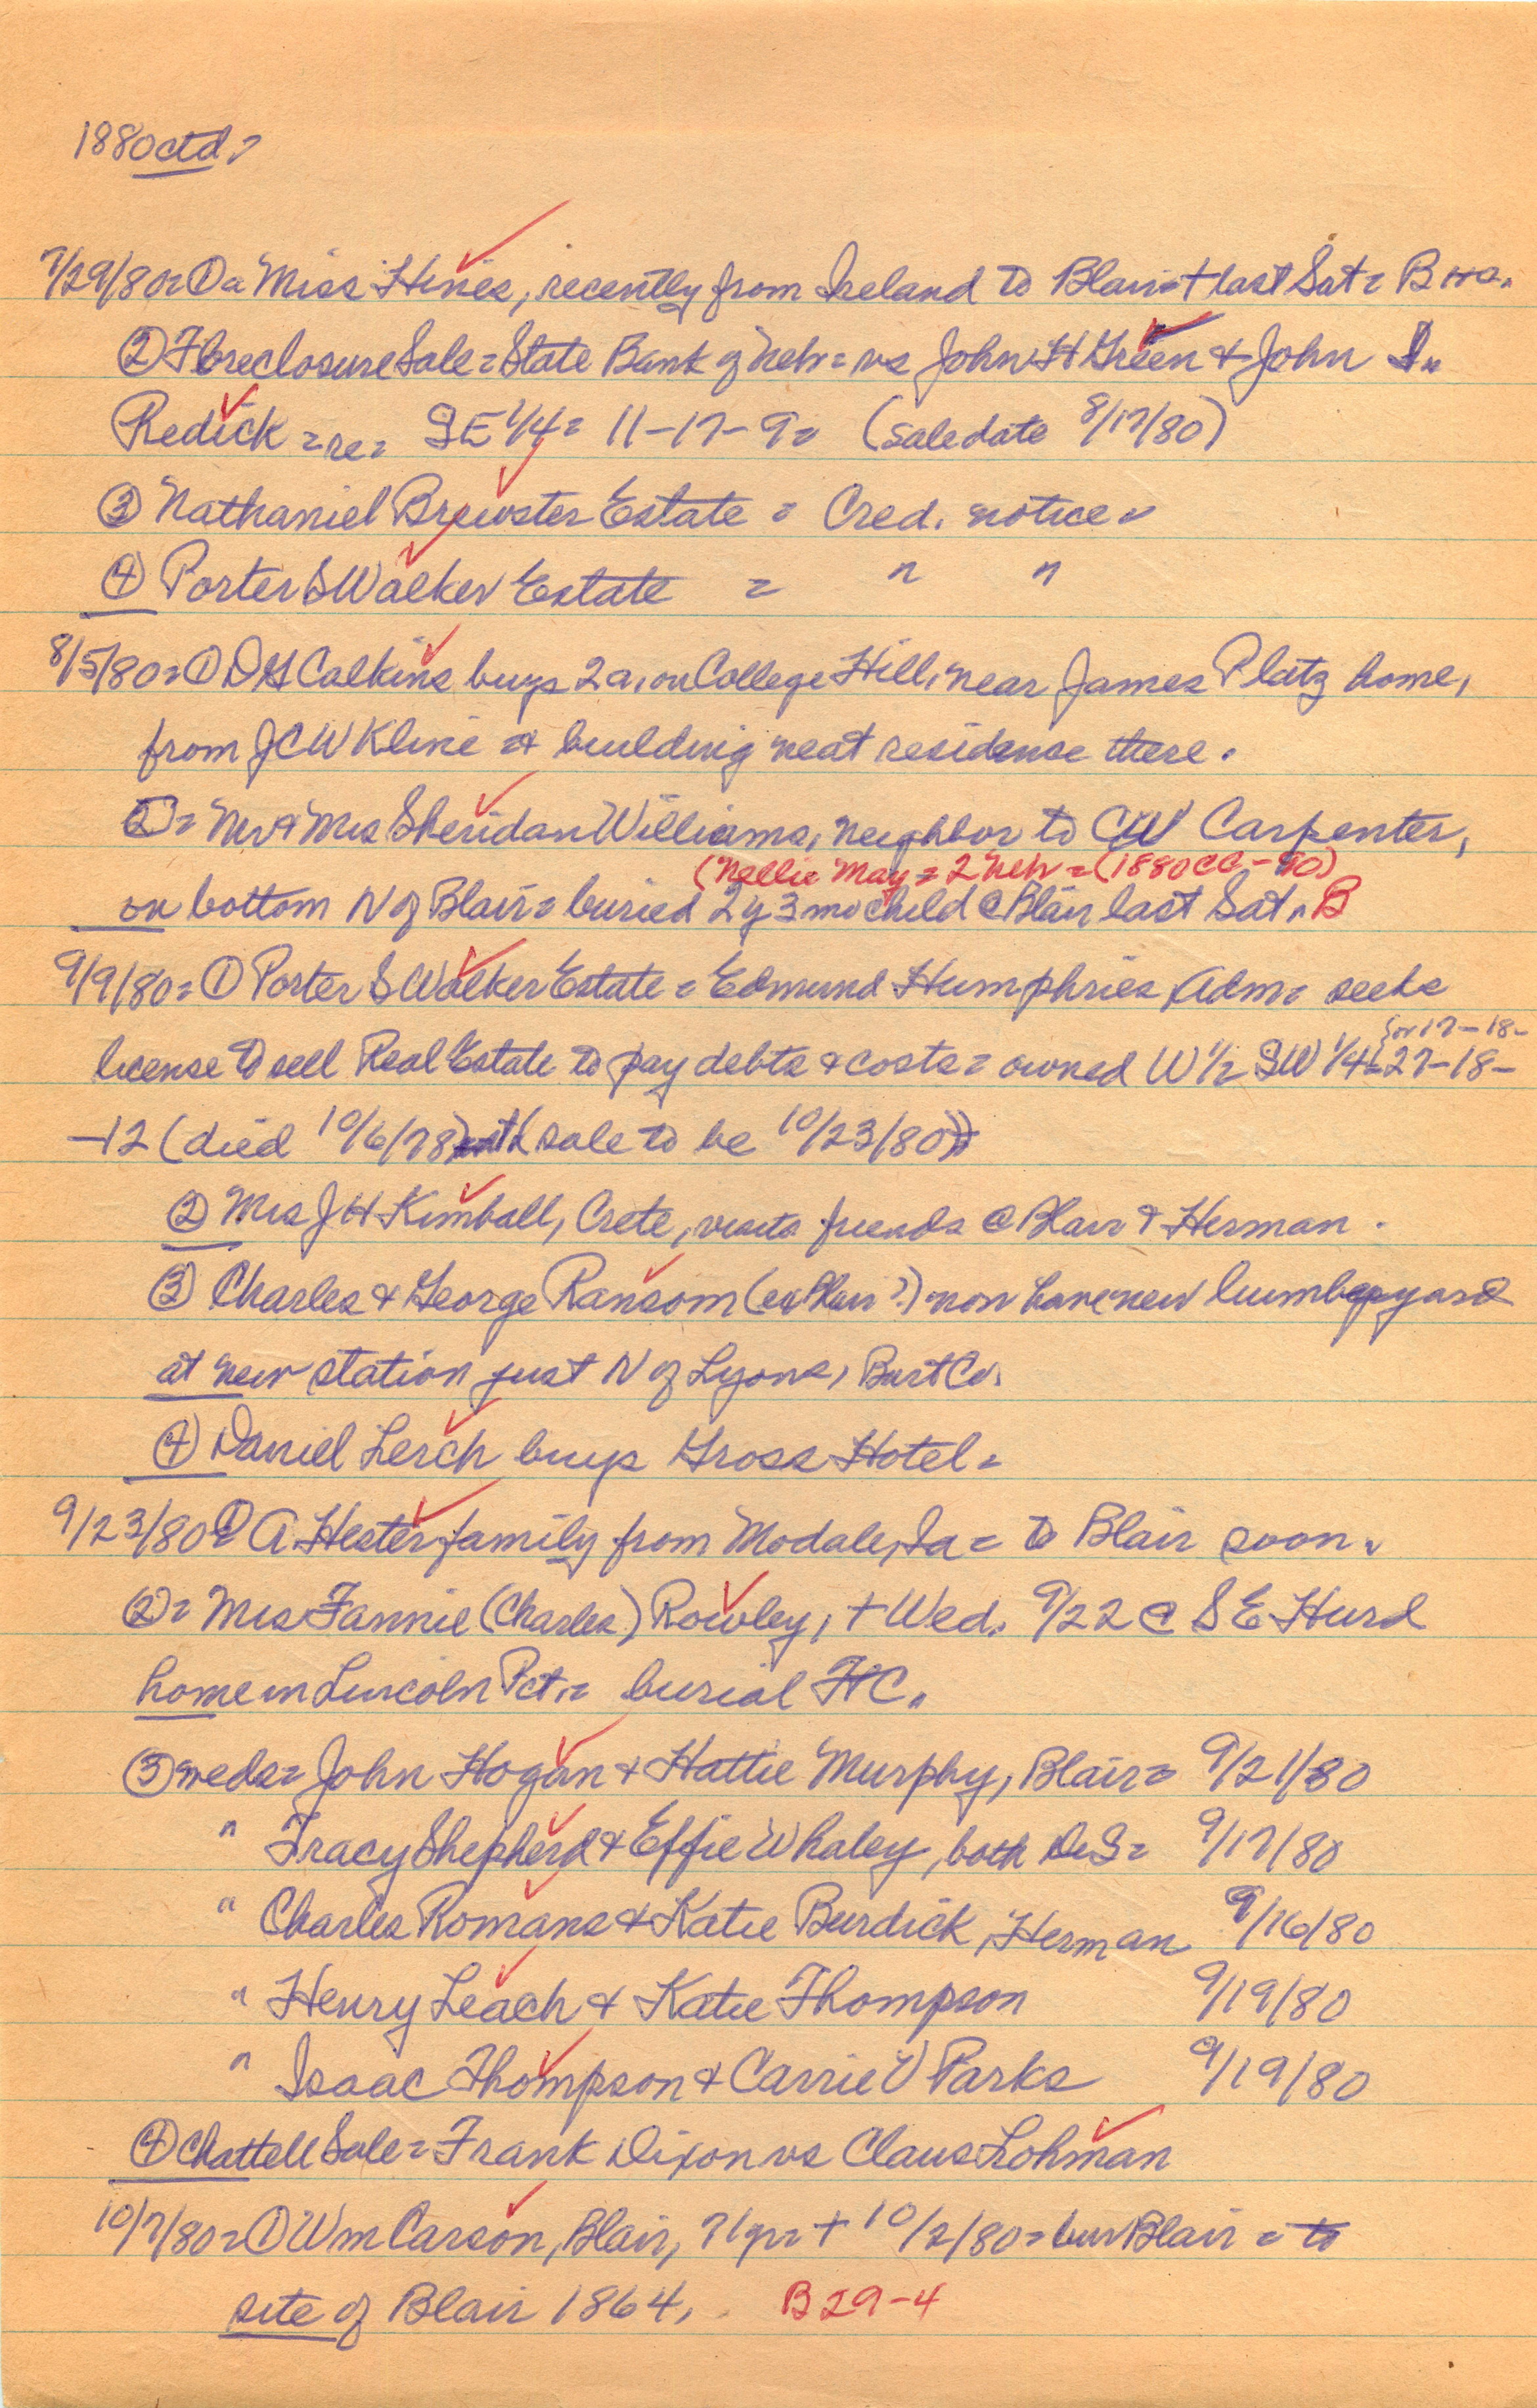 1880 ctd =
7/29/80 = ① = Miss Hines, recently from Ireland to Blair = + last Sat =
② Foreclosure Sale = State Bank of Neb = vs John H Green & John I.
Redick = re = SE 1/4 = 11-17-9 = (sale date 8/17/80)
③ Nathaniel Brewster Estate = Cred. notice.
④ Porter S Walker Estate = " "
8/5/80 = ① D H Calkins buys 2 a. on College Hill, near James Platz home,
from J C W Kline & building neat residense there.
② = Mr & Mrs Sheridan Williams, neighbor to CW Carpenter,
(Nellie May = 2 Neb = (1880 CC - 90)
on bottom N of Blair = buried 2y 3mo child @ Blair last Sat. B
9/9/80 = ① Porter S Walker Estate = Edmund Humphries, Adm = seeks
{or 17-18-
license to sell Real Estate to pay debts & costs = owned W 1/2 SW 1/4 27-18-
-12 (died 10/6/78) (sale to be 10/23/80)
② Mrs J H Kimball, Crete, visits friends @ Blair & Herman.
③ Charles & George Ransom (ex Blair?) now have new lumberyard
at new station just N of Lyons, Burt Co.
④ Daniel Lerch buys Gross Hotel =
9/23/80 ① A. Hester family from Modale, Ia = to Blair soon.
② = Mrs Fannie (Charles) Rowley, + Wed. 9/22 @ S E Hurd
home in Lincoln Pct. = burial FtC.
③ weds = John Hogan & Hattie Murphy, Blair = 9/21/80
" Tracy Shepherd & Effie Whaley, both DeS = 9/17/80
" Charles Romans & Katie Burdick, Herman 9/16/80
" Henry Leach & Katie Thompson 9/19/80
" Isaac Thompson & Carrie V Parks 9/19/80
④ Chattell Sale = Frank Dixon vs Claus Lohman
10/7/80 = ① Wm Carson, Blair, 71 yr = + 10/2/80 = bur Blair = to
site of Blair 1864. B 29-4